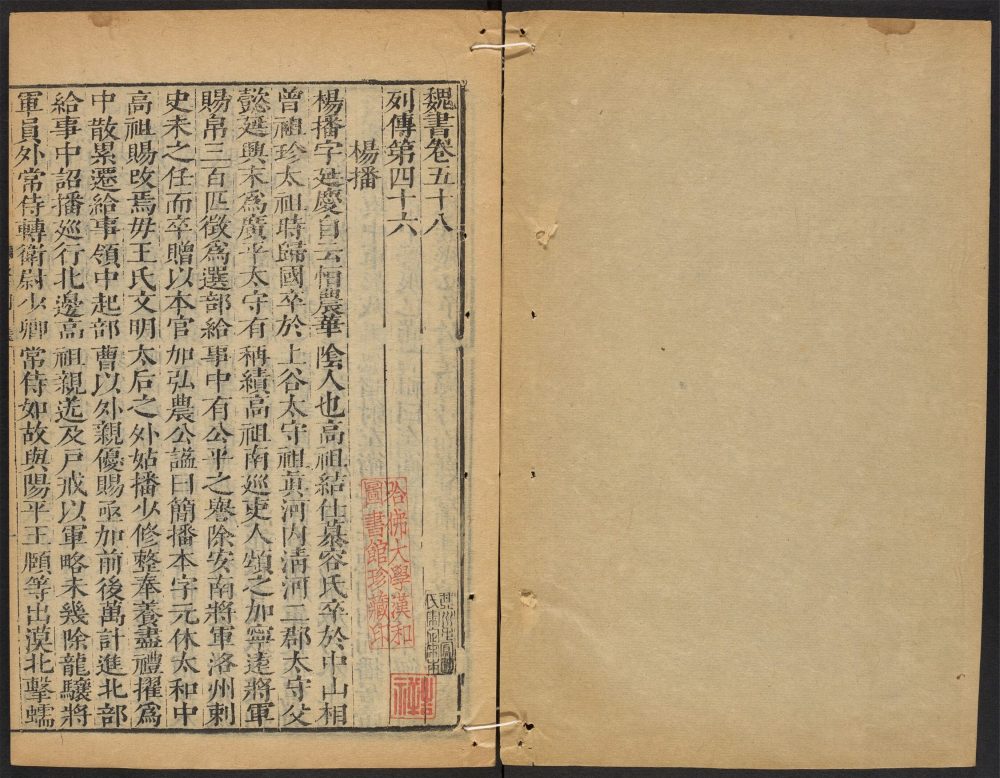 魏書卷五十八
列傳第四十六
楊播
楊播字延慶自云恒農華陰人也高祖結仕慕容氏卒於中山相
曾祖珍太祖時歸國卒於上谷太守祖眞河內清河二郡太守父
懿延興末爲廣平太守有稱績高祖南巡吏人頌之加寧遠將軍
賜帛三百匹徵爲選部給事中有公平之譽除安南將軍洛州刺
史未之任而卒贈以本官加弘農公謚曰簡播本字元休太和中
高祖賜改焉毋王氏文明太后之外姑播少修整奉養盡禮擢爲
中散累遷給事領中起部曹以外親優賜亟加前後萬計進北部
給事中詔播巡行北邊高祖親送及戸戒以軍略未幾除龍驤將
軍員外常侍轉衛尉少卿常侍如故與陽平王頤等出漠北擊蠕
哈佛大學漢和
圖書館珍藏印